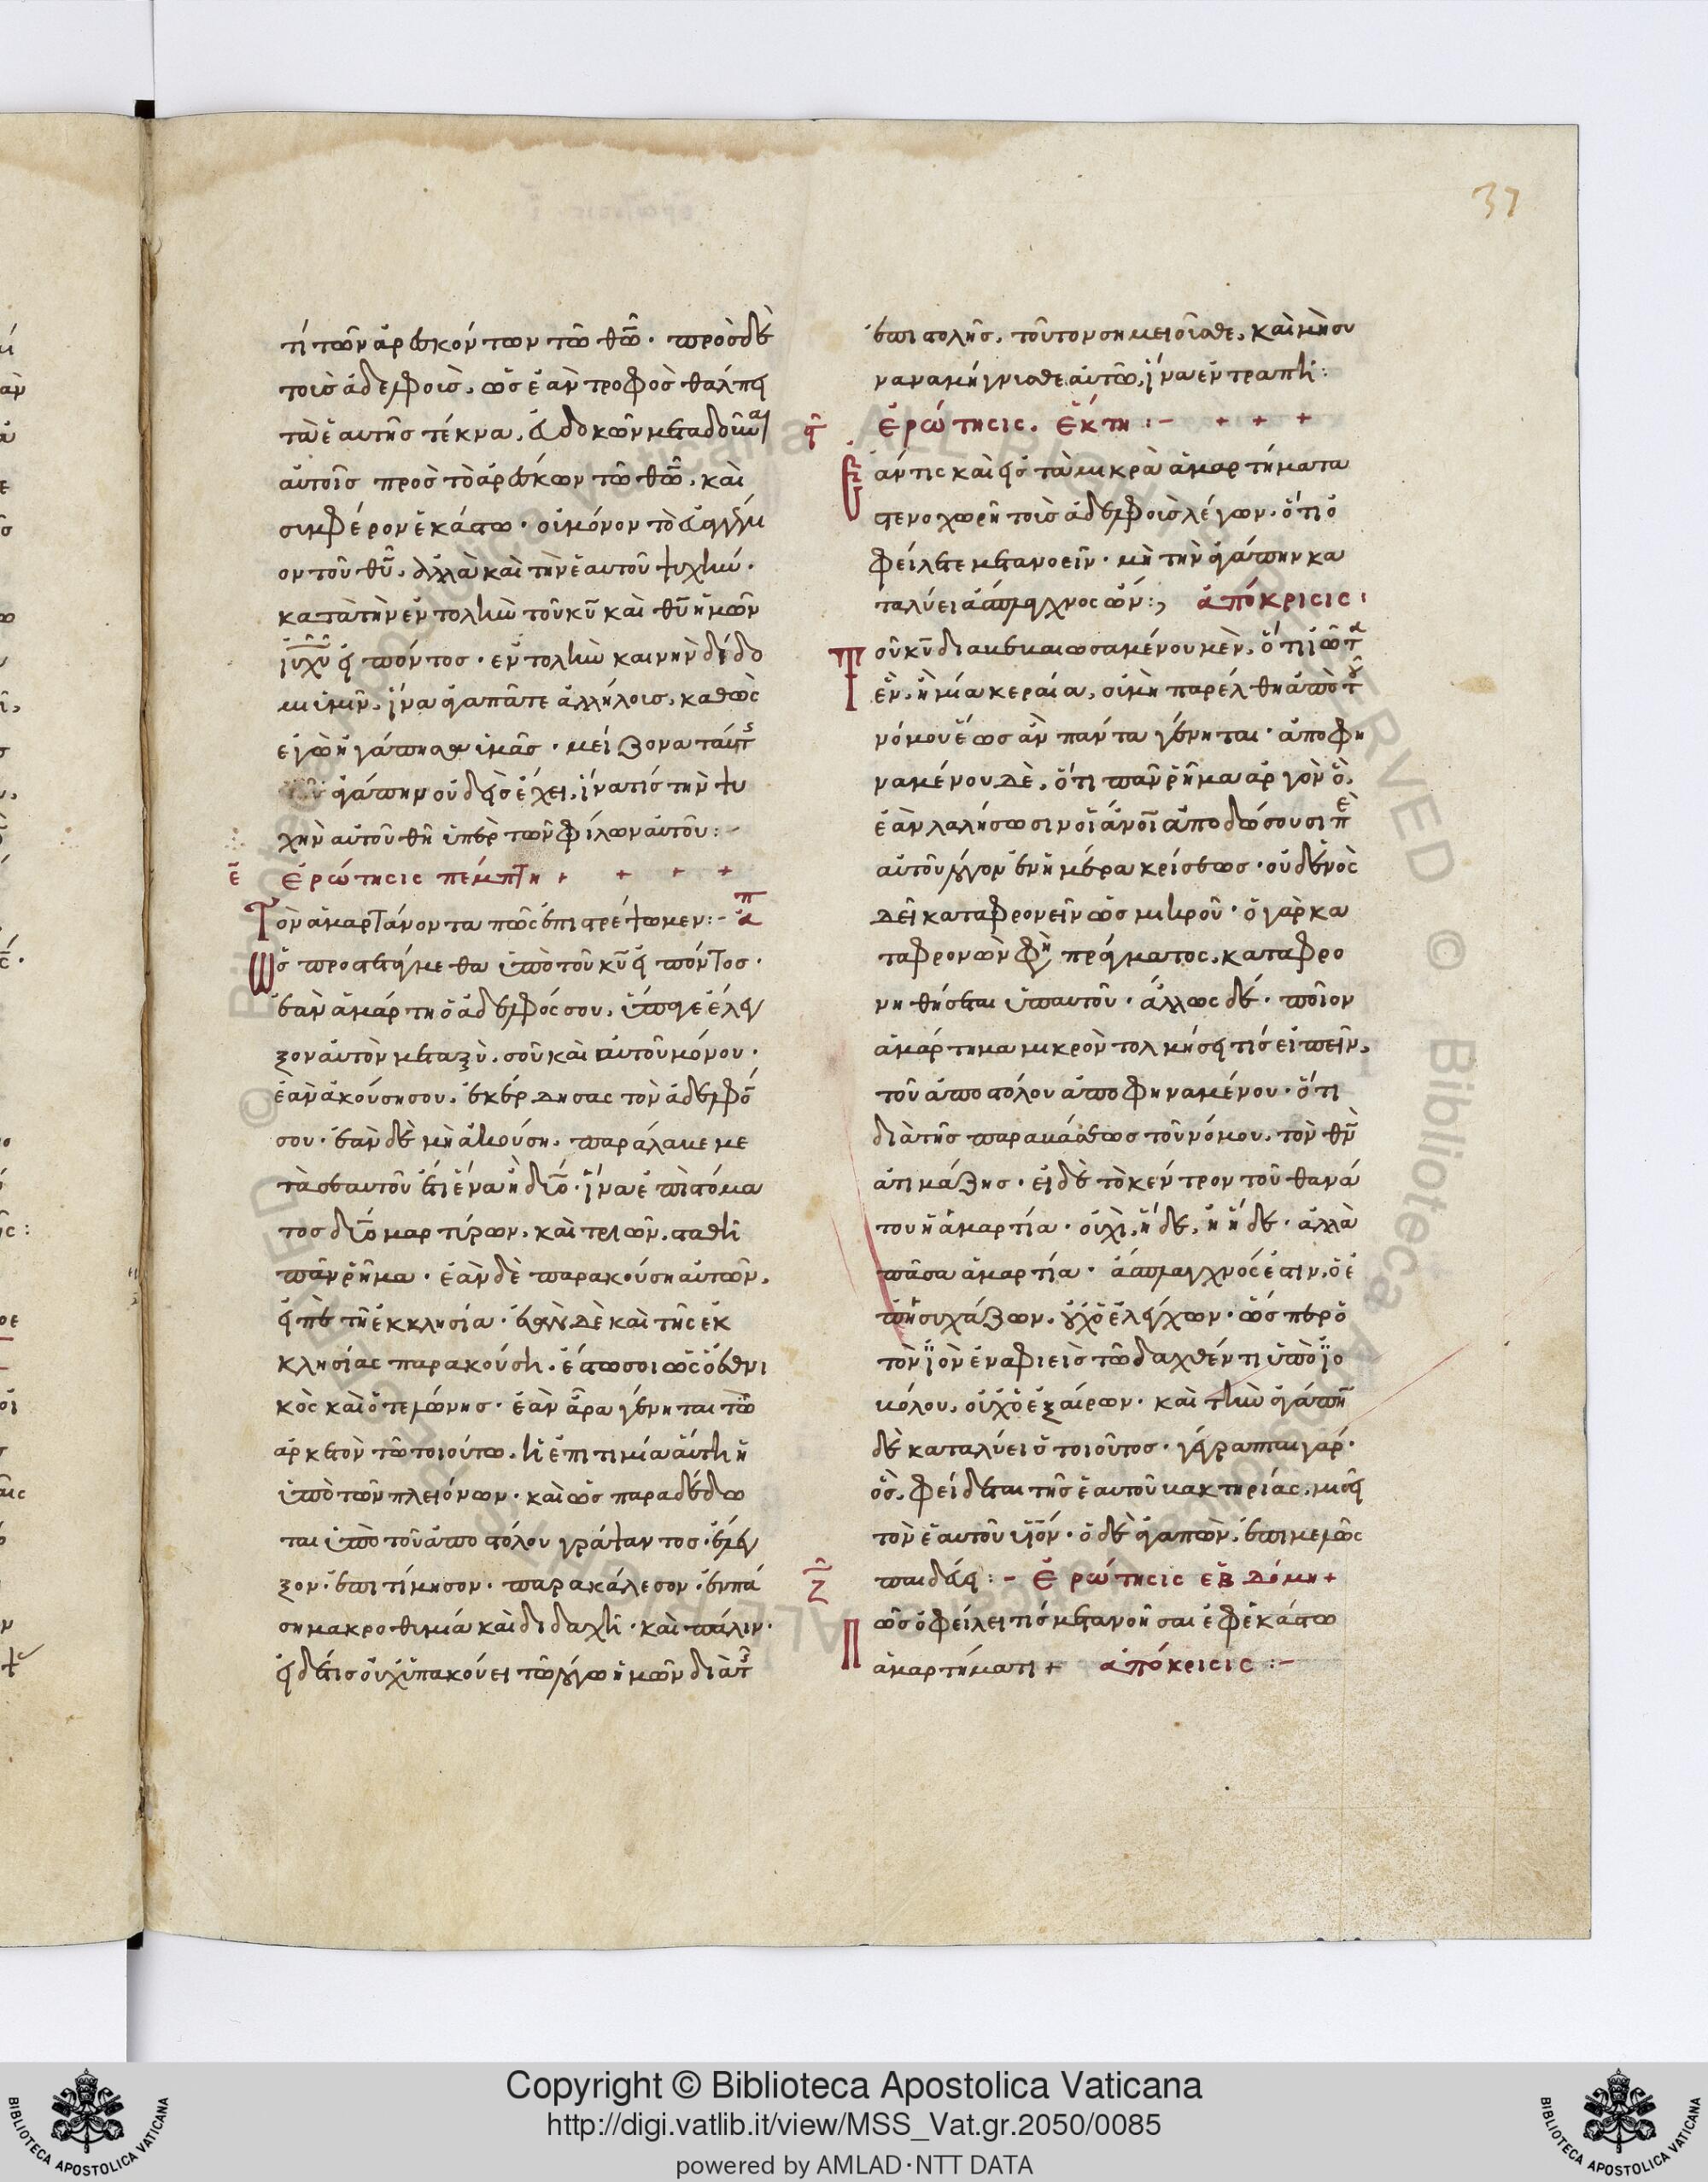 37
τί τῶν ἀρεσκόντων τῶ θῶ. πρὸσ δὲ
τοισ ἀδελφοισ, ὡσ ἐὰν τροφὸσ θάλπει
τὰ ἑαυτῆσ τέκνα, εὐδοκῶν μεταδοῦναι
αὐτοῖσ πρὸσ τὸ ἀρέσκων τῶ θῶ, καὶ
συμφέρον ἑκάστω. οὐ μόνον τὸ εὐαγγέλι
ον τοῦ θυ, ἀλλὰ καὶ τὴν ἑαυτοῦ ψυχὴν.
κατὰ τὴν ἐντολὴν τοῦ κυ καὶ θυ ἡμῶν
ιυ χυ εἰπόντοσ. ἐντολὴν καινὴν δίδο
μι ὑμῖν, ἵνα ἀγαπᾶτε ἀλλήλουσ, καθὼς
ἐγὼ ἠγάπησα ὑμᾶσ. μείζονα ταύτησ
ἀγάπην οὐδεὶσ ἔχει, ἵνα τίσ τὴν ψυ
χὴν αὐτοῦ θῆ ὑπὲρ τῶν φίλων αὐτοῦ:-
ε ἐρώτησις πέμπτη + + + +
Τὸν ἁμαρτάνοντα πῶς ἐπιστρέψωμεν:- ἀπ
Ὡσ προσετάγμεθα ὑπὸ τοῦ κυ εἰπόντοσ.
ἐὰν ἁμάρτη ὁ ἀδελφός σου, ὕπαγε ἔλεγ
ξον αὐτὸν μεταξὺ, σοῦ καὶ αὐτοῦ μόνου.
ἐὰν ἀκούση σου, ἐκέρδησας τὸν ἀδελφό
σου. ἐὰν δὲ μὴ ἀκούση, παράλαμε με
τὰ σεαυτοῦ ἔτι ἕνα ἢ δύο. ἵνα ἐπὶ στόμα
τοσ δύο μαρτύρων, καὶ τριῶν, σταθῆ
πᾶν ῥῆμα. ἐὰν δὲ παρακούση αὐτῶν,
εἰπὲ τῆ ἐκκλησία. ἐὰν δὲ καὶ τῆς ἐκ
κλησίας παρακούση. ἔστω σοι ὡς ὁ ἐθνι
κὸς καὶ ὁ τελώνησ. ἐὰν ἄρα γένηται τῶ
ἀρκετὸν τῶ τοιούτω, ἡ ἐπιτιμία αὕτη ἡ
ὑπὸ τῶν πλειόνων. καὶ ὡσ παραδέδω
ται ὑπὸ τοῦ ἀποστόλου γράψαντοσ. ἔλεγ
ξον. ἐπιτίμησον. παρακάλεσον. ἐν πά
ση μακροθυμία καὶ διδαχῆ. καὶ πάλιν.
εἰ δέ τισ οὐχ ὑπακούει τῶ λόγω ἡμῶν διὰ τῆσ
ἐπιστολῆσ, τοῦτον σημειοῦσθε, καὶ μὴ συ
ναναμήγνυσθε αὐτῶ, ἵνα ἐντραπῆ:
ἐρώτησις. ἕκτη:- + + +
Ἐάν τις καὶ εἰσ τὰ μικρὰ ἁμαρτήματα
στενοχωρῆ τοὺσ ἀδελφοὺσ λέγων. ὅτι ὀ
φείλετε μετανοεῖν. μὴ τὴν ἀγάπην κα
ταλύει ἄσπλαγχνος ὤν:, ἀπόκρισις:
Τοῦ κυ διαβεβαιωσαμένου μὲν, ὅτι ἰῶτα
ἓν, ἢ μία κεραία, οὐ μὴ παρέλθη ἀπὸ τοῦ
νόμου ἕωσ ἂν πάντα γένηται. ἀποφη
ναμένου δὲ, ὅτι πᾶν ῥῆμα ἀργὸν ὃ,
ἐὰν λαλήσωσιν οἱ ἄνοι ἀποδώσουσι πε
αὐτοῦ λόγον ἐν ἡμέρα κρίσεωσ. οὐδενὸς
δεῖ καταφρονεῖν ὡσ μικροῦ. ὁ γὰρ κα
ταφρονῶν φη πράγματος, καταφρο
νηθήσεται ὑπ αὐτοῦ. ἄλλως δὲ. ποῖον
ἁμάρτημα μικρὸν τολμήσει τίσ εἰπεῖν,
τοῦ ἀποστόλου ἀποφηναμένου. ὅτι
διὰ τῆσ παραβάσεωσ τοῦ νόμου, τὸν θν
ἀτιμάζησ. εἰ δὲ τὸ κέντρον τοῦ θανά
του ἡ ἁμαρτία. οὐχὶ, ἥδε, ἢ ἥδε. ἀλλὰ
πᾶσα ἁμαρτία. ἄσπλαγχνός ἐστιν, ὁ ἐ
φησυχάζων, οὐχ ὁ ἐλέγχων. ὥσπερ ὁ
τὸν ἰὸν ἐναφιεὶσ τῶ δαχθέντι ὑπὸ ἰο
βόλου, οὐχ ὁ ἐξαίρων. καὶ τὴν ἀγάπην
δὲ καταλύει ὁ τοιοῦτοσ. γέγραπται γάρ.
ὃσ, φείδεται τῆσ ἑαυτοῦ βακτηρίας, μισεῖ
τὸν ἑαυτοῦ υἱόν. ὁ δὲ ἀγαπῶν, ἐπιμελῶς
παιδεύει:- Ἐρώτησις ἑβδόμη +
Πῶσ ὀφείλει τίσ μετανοῆσαι ἐφ ἑκάστω
ἁμαρτήματι + ἀπόκρισις:-
Copyright © Biblioteca Apostolica Vaticana
http://digi.vatlib.it/view/MSS_Vat.gr.2050/0085
powered by AMLAD·NTT DATA